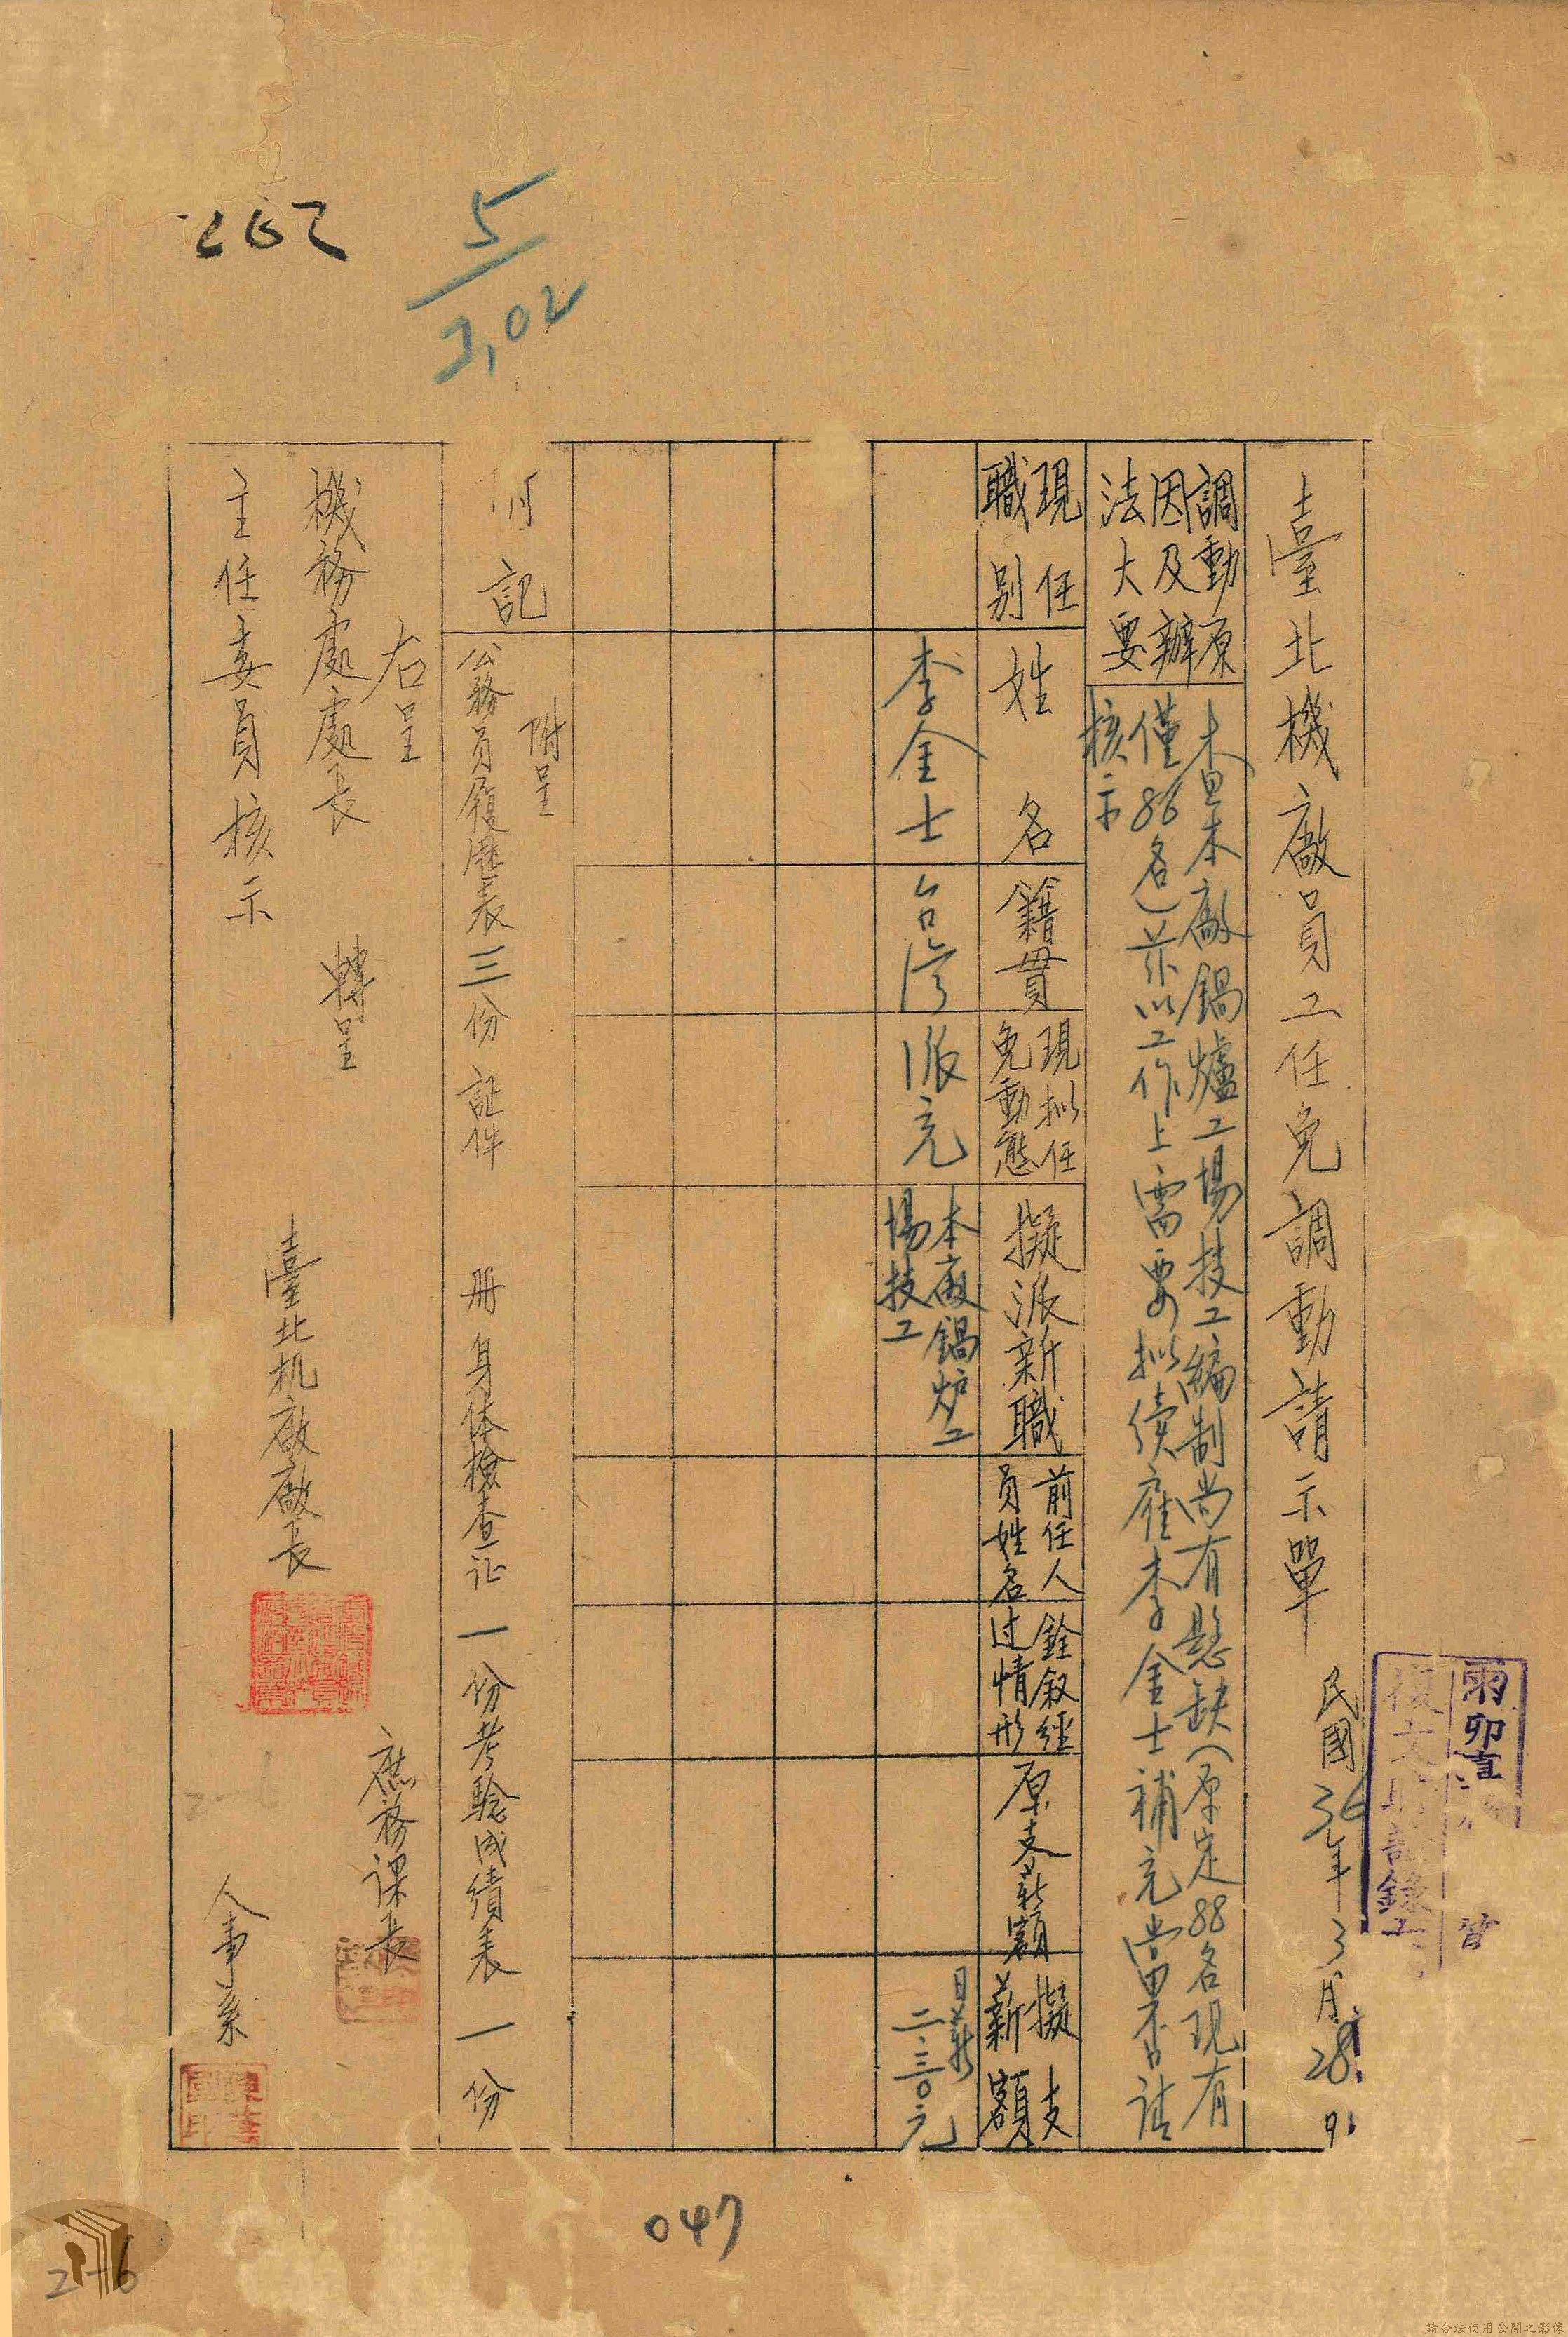 臺北機廠員工任免調動請示單
民國36年3月28
調動原
因及辦
法大要
本廠鍋爐工場技工編制尚有懸缺(原定88名現有
僅86名)茲以工作上需要拟續雇李金士補充當否請
核示
現任
職別
姓名
籍貫
現拟任
免動態
擬派新職
前任人
員姓名
銓叙經
过情形
原支薪額
擬支
薪額
李金士
台湾
派充
本廠鍋炉工
場技工
日薪
二.三〇元
附記
附呈
公務員履歷表三份 証件 册 身体檢查证一份考驗成績表一份
右呈
機務處處長 轉呈
主任委員核示
臺北机廠廠長
庶務课長
人事系
262
5
2,02
047
2-6
請合法使用公開之影像